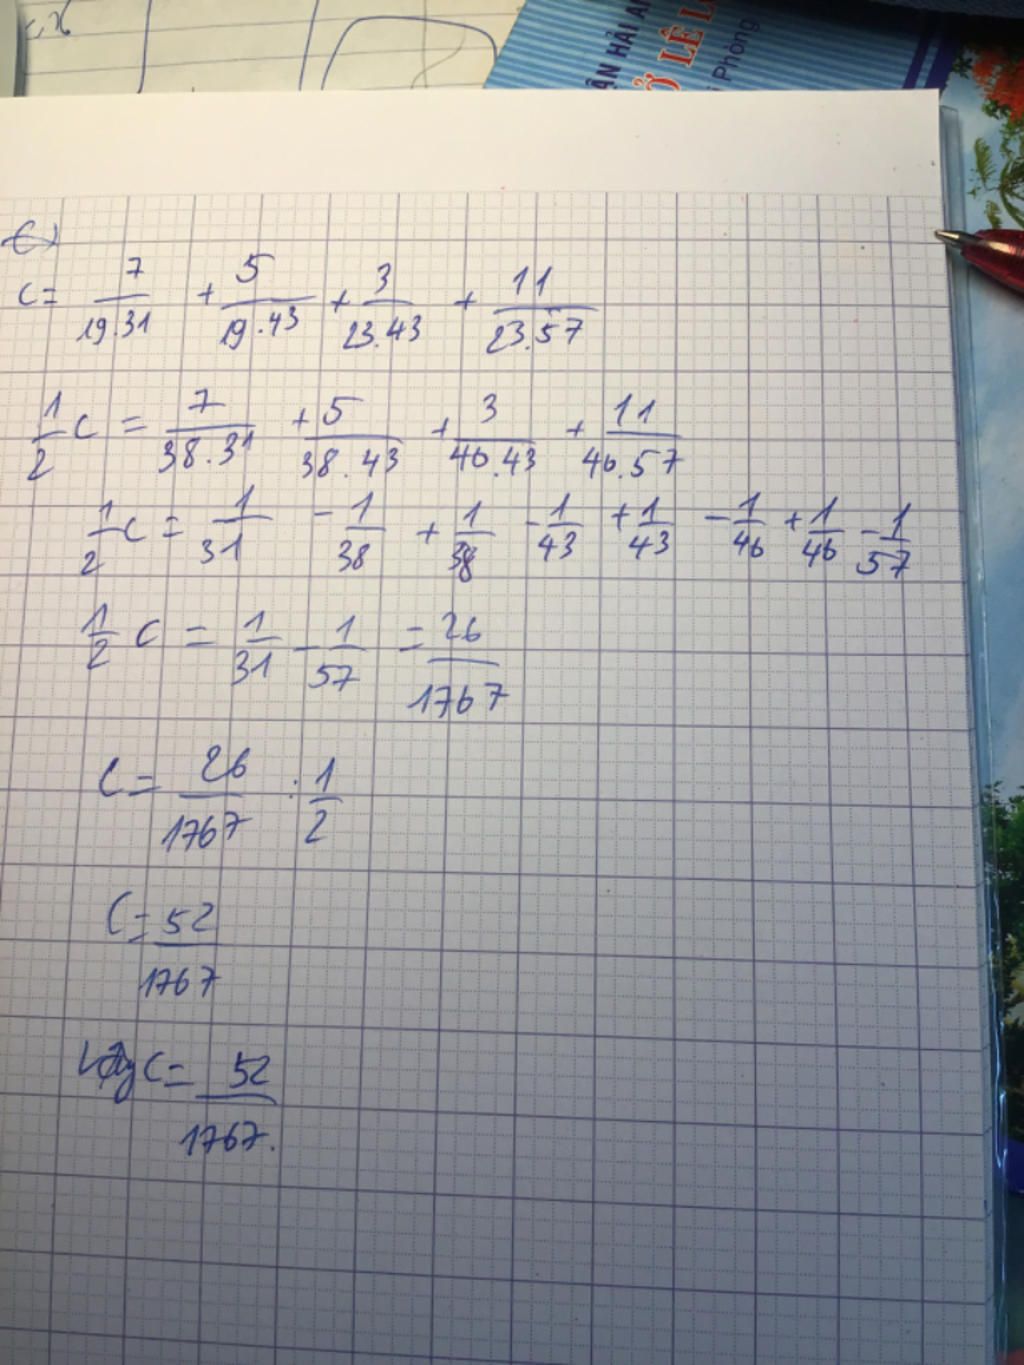 ẬN HẢI AN
Ở LÊ L
Phòng
c)
C = 7/19.31 + 5/19.43 + 3/23.43 + 11/23.57
1/2 C = 7/38.31 + 5/38.43 + 3/46.43 + 11/46.57
1/2 C = 1/31 - 1/38 + 1/38 - 1/43 + 1/43 - 1/46 + 1/46 - 1/57
1/2 C = 1/31 - 1/57 = 26/1767
C = 26/1767 : 1/2
C = 52/1767
Vậy C = 52/1767.